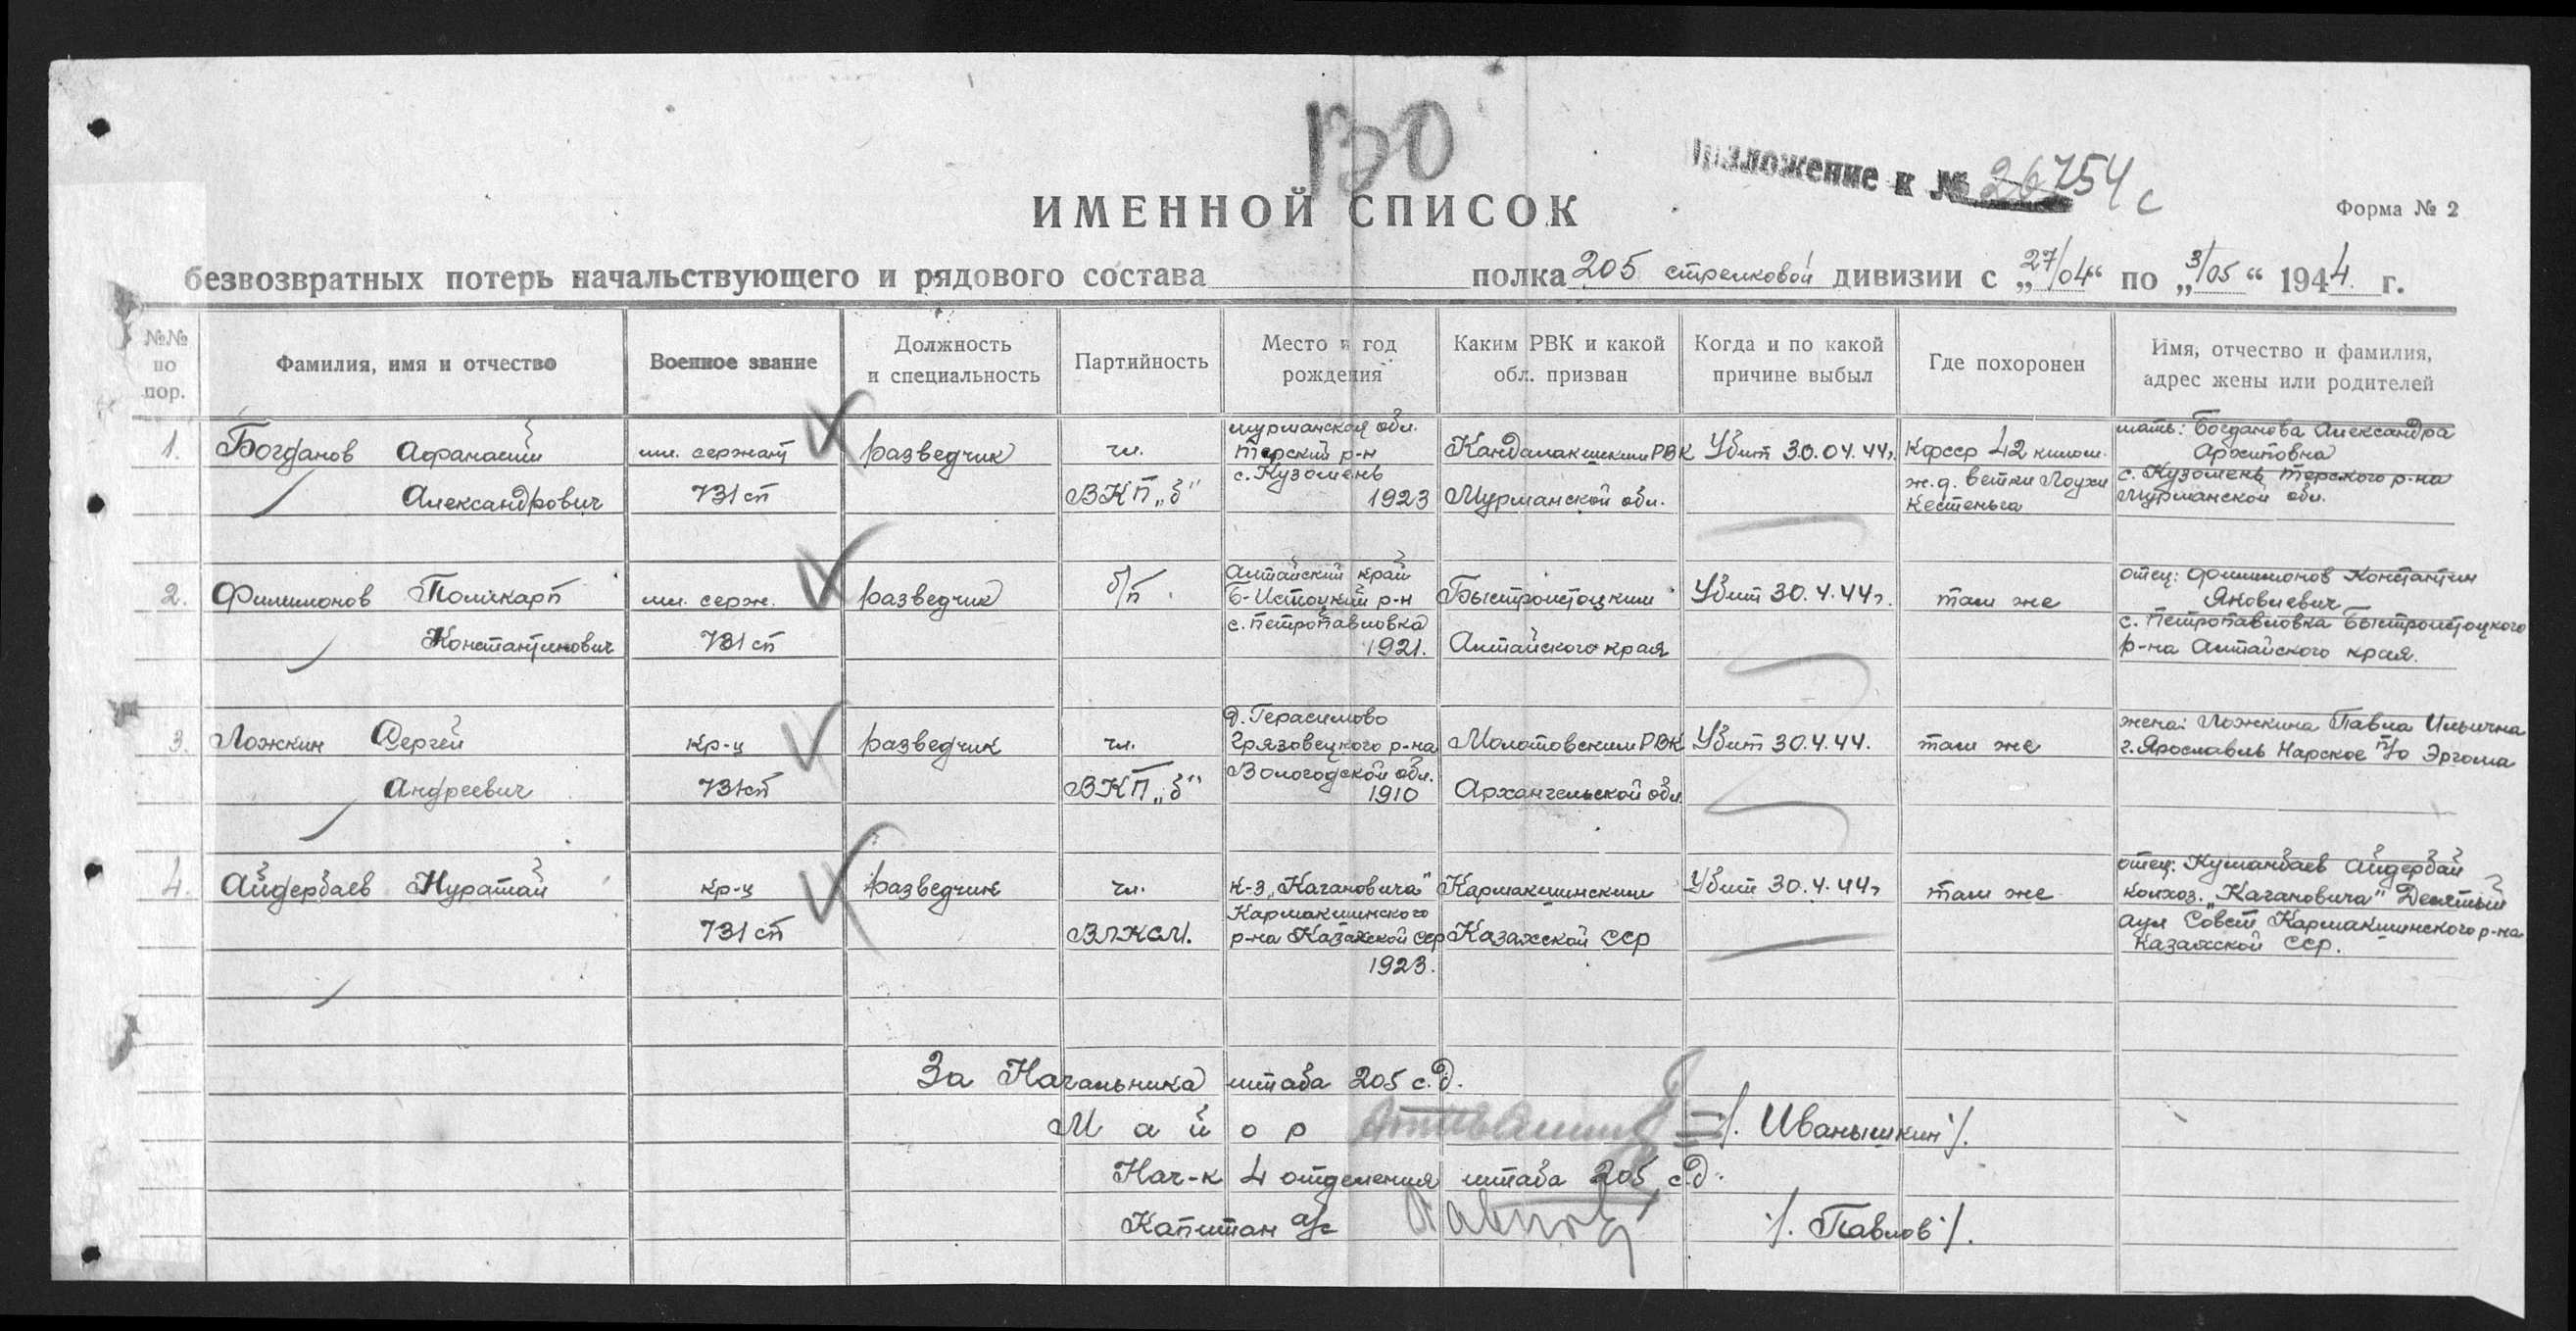 130
Приложение к № 26754с
ИМЕННОЙ СПИСОК
Форма № 2
безвозвратных потерь начальствующего и рядового состава полка 205 стрелковой дивизии с „27/04“ по „3/05“ 1944 г.
№№ по пор.
Фамилия, имя и отчество
Военное звание
Должность и специальность
Партийность
Место и год рождения
Каким РВК и какой обл. призван
Когда и по какой причине выбыл
Где похоронен
Имя, отчество и фамилия, адрес жены или родителей
1.
Богданов Афанасий
Александрович
мл. сержант
731 сп
разведчик
чл.
ВКП „б“
мурманская обл.
Терский р-н
с. Кузомень
1923
Кандалакшским РВК
Мурманской обл.
Убит 30.04.44г.
Кфсср 42 килом.
ж.д. ветки Лоухи
Кестеньга
мать: Богданова Александра
Архиповна
с. Кузомень Терского р-на
Мурманской обл.
2.
Филимонов Поликарп
Константинович
мл. серж.
731 сп
разведчик
б/п.
Алтайский край
Б-Истоцкий р-н
с. Петропавловка
1921.
Быстроистоцким
Алтайского края
Убит 30.4.44г.
там же
отец: Филимонов Константин
Яковлевич
с. Петропавловка Быстроистоцкого
р-на Алтайского края.
3.
Ложкин Сергей
Андреевич
кр-ц
731 сп
разведчик
чл.
ВКП „б“
д. Герасимово
Грязовецкого р-на
Вологодской обл.
1910
Молотовским РВК
Архангельской обл.
Убит 30.4.44.
там же
жена: Ложкина Павла Ильична
г. Ярославль Нарское п/о Эргома
4.
Айдербаев Нуратай
кр-ц
731 сп
разведчик
чл.
ВЛКСМ.
к-з „Кагановича“
Кармакшинского
р-на Казахской сср
1923.
Кармакшинским
Казахской сср
Убит 30.4.44г
там же
отец: Куманбаев Айдербай
колхоз. „Кагановича“ Десятый
аул Совет Кармакшинского р-на
Казахской сср.
За Начальника штаба 205 с.д.
Майор /. Иванышкин /.
Нач-к 4 отделения штаба 205 с.д.
Капитан а/с Павлов /. Павлов /.